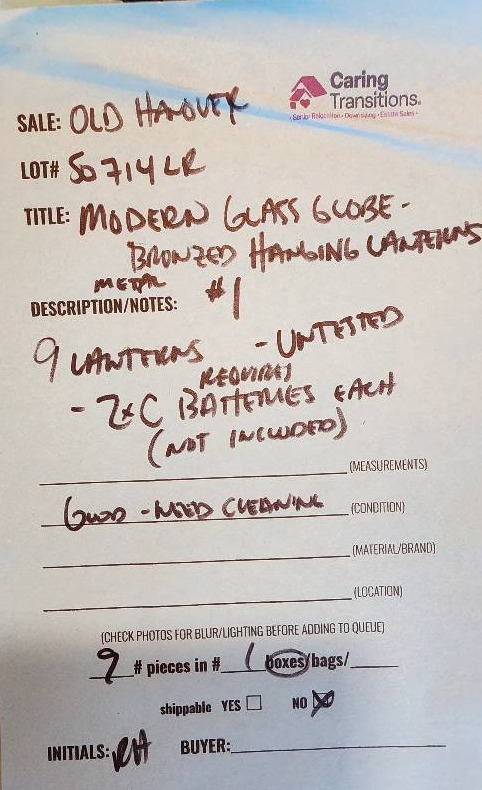 Caring
Transitions®
Senior Relocation • Downsizing • Estate Sales
SALE: OLD HANOVER
LOT# SO714LR
TITLE: MODERN GLASS GLOBE -
BRONZED HANGING LANTERNS
METAL #1
DESCRIPTION/NOTES:
9 LANTERNS - UNTESTED
REQUIRES
- 2xC BATTERIES EACH
(NOT INCLUDED)
(MEASUREMENTS)
GOOD - NEED CLEANING (CONDITION)
(MATERIAL/BRAND)
(LOCATION)
(CHECK PHOTOS FOR BLUR/LIGHTING BEFORE ADDING TO QUEUE)
9 # pieces in # 1 boxes/bags/
shippable YES NO
INITIALS: RH BUYER: